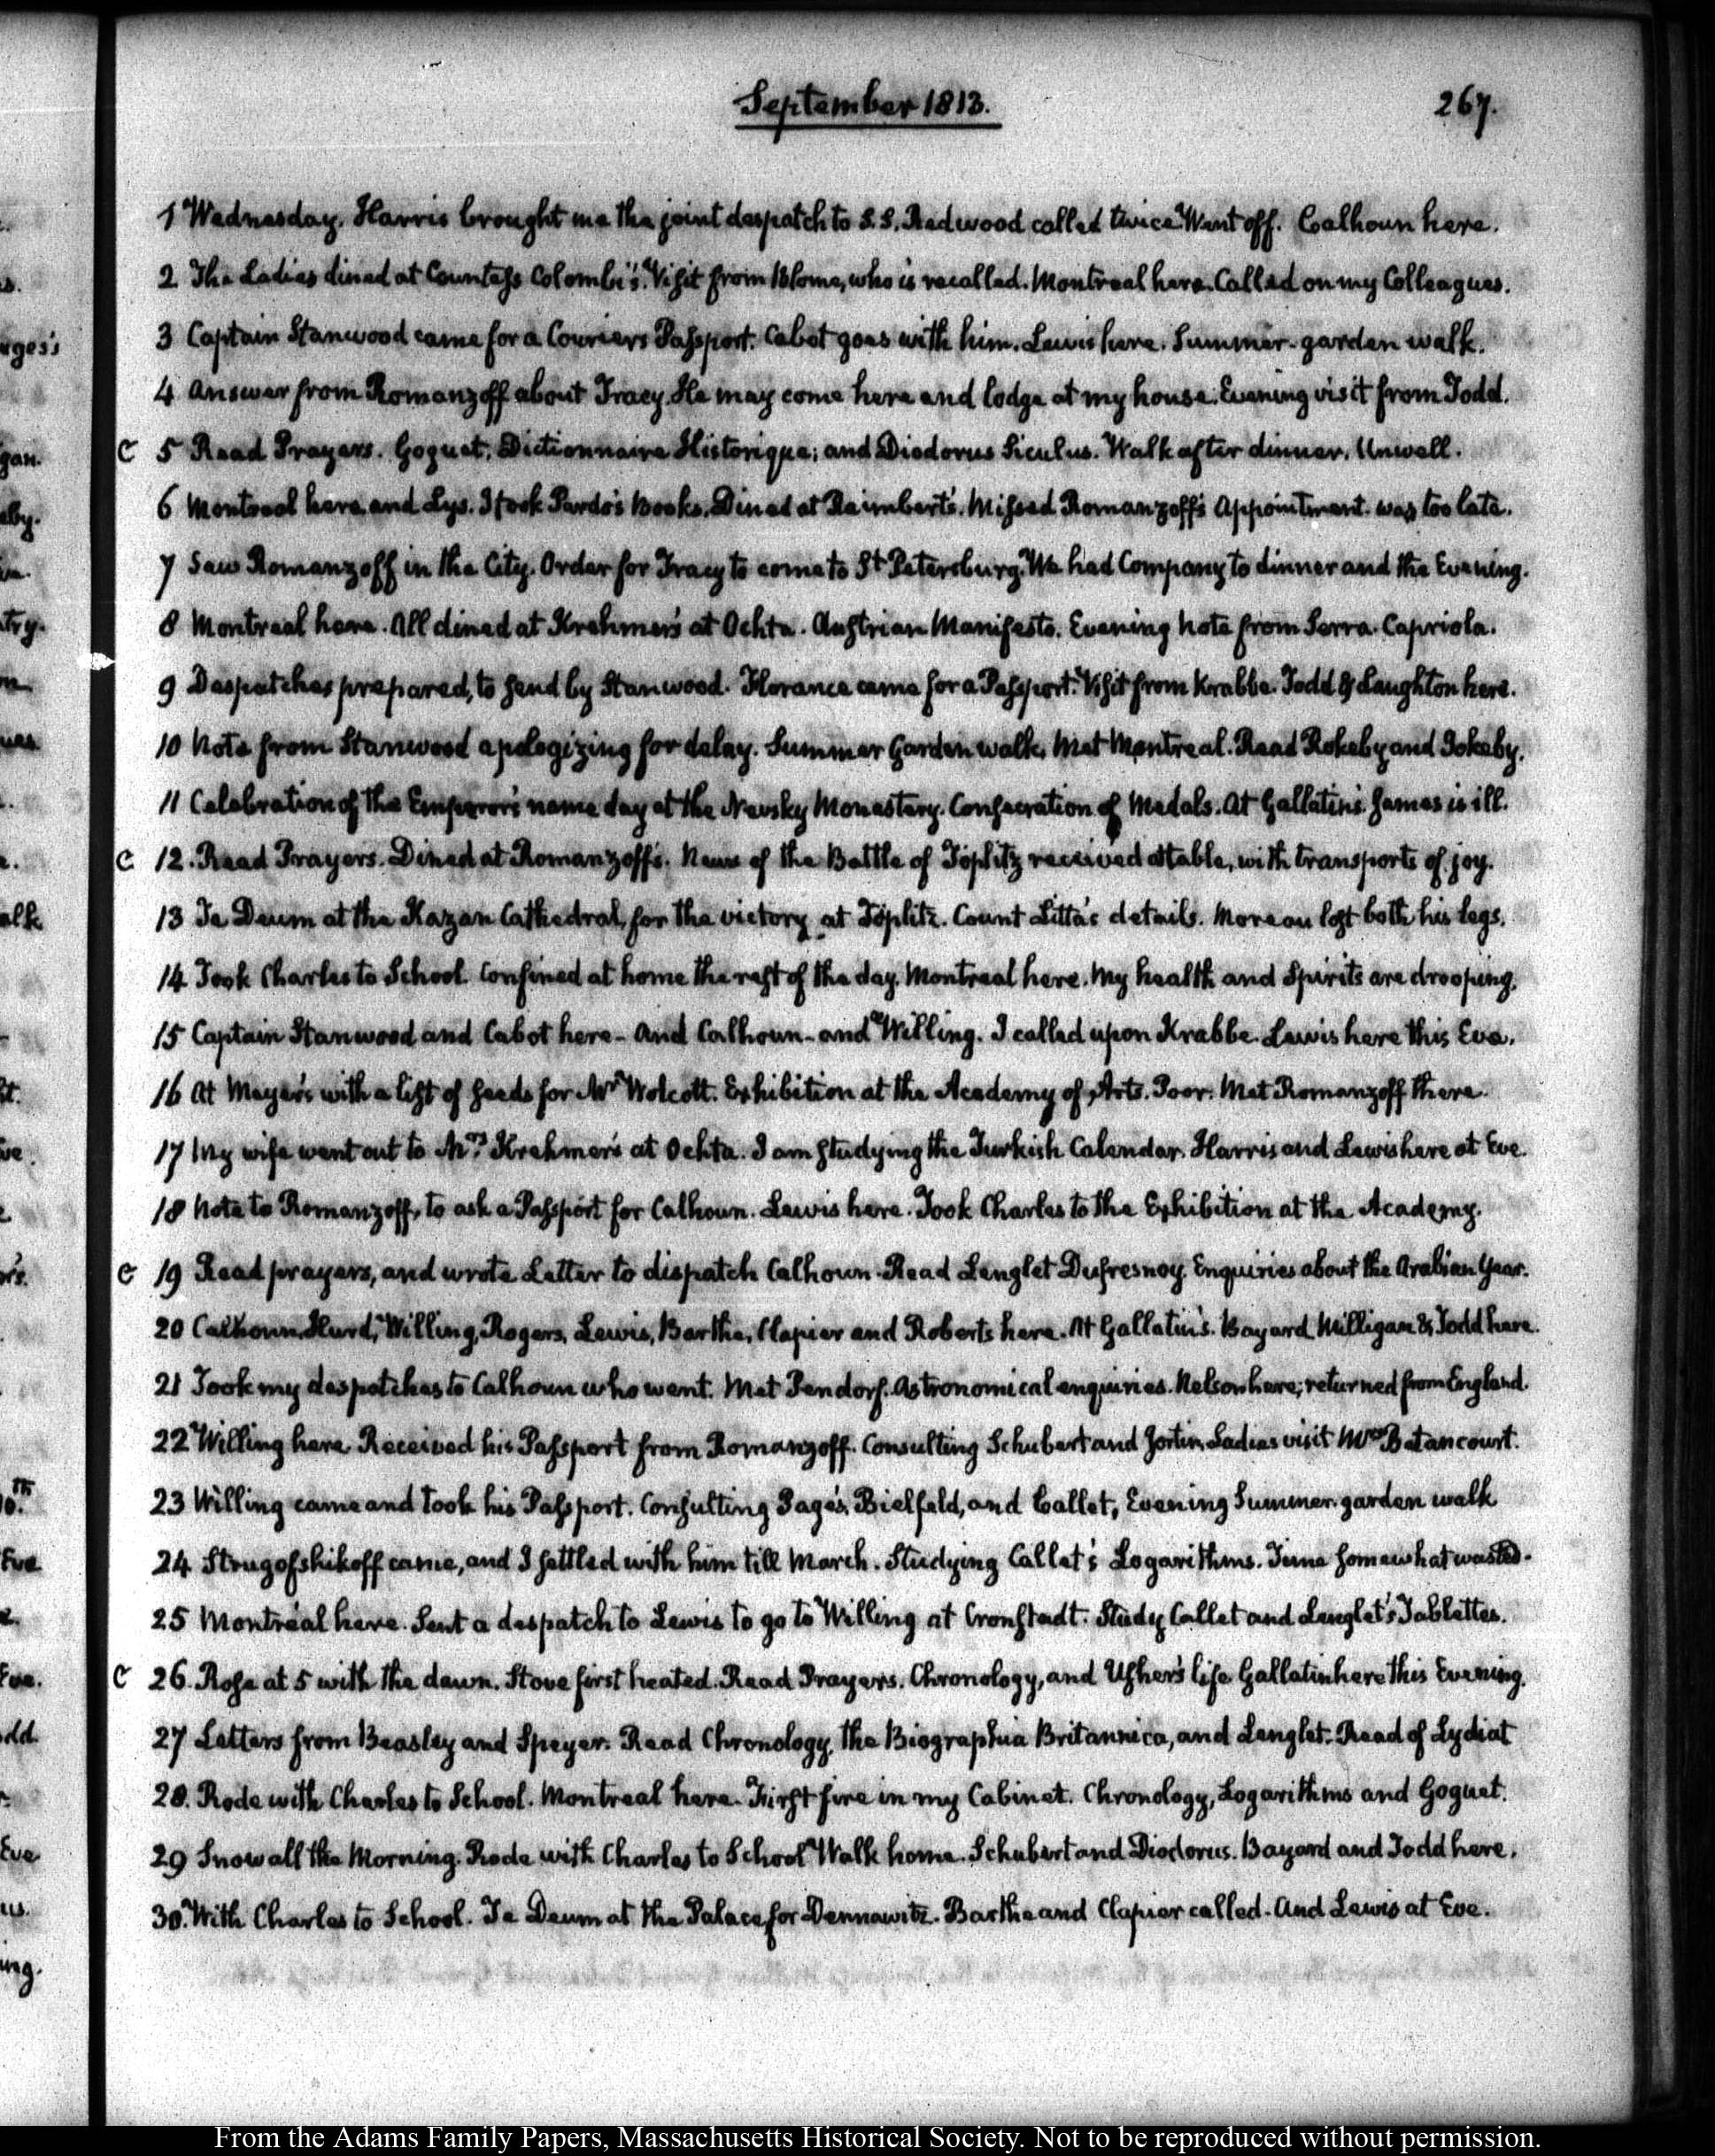 September 1813.
267.
1 Wednesday. Harris brought me the joint despatch to S.S. Redwood called twice. Went off. Calhoun here.
2 The Ladies dined at Countess Colombi's. Visit from Blome, who is recalled. Montreal here. Called on my Colleagues.
3 Captain Stanwood came for a Couriers Passport. Cabot goes with him. Lewis here. Summer-garden walk.
4 Answer from Romanzoff about Tracy. He may come here and lodge at my house. Evening visit from Todd.
C 5 Read Prayers. Goguet, Dictionnaire Historique; and Diodorus Siculus. Walk after dinner. Unwell.
6 Montreal here, and Lys. I took Pardo's Books. Dined at Raimbert's. Missed Romanzoff's Appointment. was too late.
7 Saw Romanzoff in the City. Order for Tracy to come to St Petersburg. We had Company to dinner and the Evening.
8 Montreal here. All dined at Krehmer's at Ochta. Austrian Manifesto. Evening Note from Serra-Capriola.
9 Despatches prepared, to send by Stanwood. Florance came for a Passport. Visit from Krabbe. Todd & Laughton here.
10 Note from Stanwood apologizing for delay. Summer Garden walk. Met Montreal. Read Rokeby and Jokeby.
11 Celebration of the Emperor's name day at the Nevsky Monastery. Consecration of Medals. At Gallatin's. James is ill.
C 12. Read Prayers. Dined at Romanzoff's. News of the Battle of Töplitz received at table, with transports of joy.
13 Te Deum at the Kazan Cathedral, for the victory at Töplitz. Count Litta's details. Moreau lost both his legs.
14 Took Charles to School. Confined at home the rest of the day. Montreal here. My health and Spirits are drooping.
15 Captain Stanwood and Cabot here- And Calhoun- and Willing. I called upon Krabbe. Lewis here this Eve.
16 At Meyer's with a list of seeds for Mr Wolcott. Exhibition at the Academy of Arts. Poor. Met Romanzoff there.
17 My wife went out to Mrs Krehmer's at Ochta. I am studying the Turkish Calendar. Harris and Lewis here at Eve.
18 Note to Romanzoff, to ask a Passport for Calhoun. Lewis here. Took Charles to the Exhibition at the Academy.
C 19 Read prayers, and wrote Letter to dispatch Calhoun. Read Lenglet Dufresnoy. Enquiries about the Arabian Year.
20 Calhoun, Hurd, Willing, Rogers, Lewis, Barthe, Clapier and Roberts here. At Gallatin's. Bayard Milligan & Todd here.
21 Took my despatches to Calhoun who went. Met Fendorf. Astronomical enquiries. Nelson here; returned from England.
22 Willing here. Received his Passport from Romanzoff. Consulting Schubert and Jortin. Ladies visit Mrs Betancourt.
23 Willing came and took his Passport. Consulting Pagès, Bielfeld, and Callet, Evening Summer-garden walk
24 Strugofshikoff came, and I settled with him till March. Studying Callet's Logarithms. Time somewhat wasted.
25 Montréal here. Sent a despatch to Lewis to go to Willing at Cronstadt. Study Callet and Lenglet's Tablettes.
C 26. Rose at 5 with the dawn. Stove first heated. Read Prayers. Chronology, and Usher's life. Gallatin here this Evening.
27 Letters from Beasley and Speyer. Read Chronology. The Biographia Britannica, and Lenglet. Read of Lydiat
28. Rode with Charles to School. Montreal here. First fire in my Cabinet. Chronology, Logarithms and Goguet.
29 Snow all the Morning. Rode with Charles to School Walk home. Schubert and Diodorus. Bayard and Todd here.
30. With Charles to School. Te Deum at the Palace for Dennawitz. Barthe and Clapier called. And Lewis at Eve.
From the Adams Family Papers, Massachusetts Historical Society. Not to be reproduced without permission.